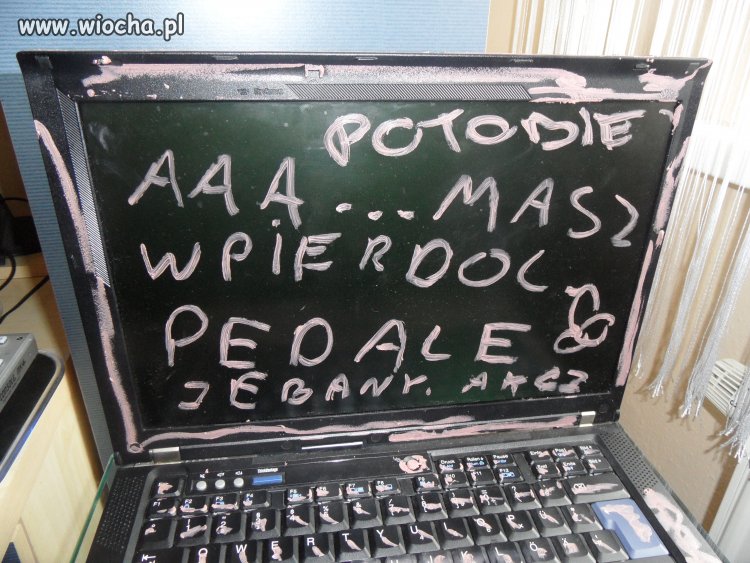 www.wiocha.pl
POTOBIE
AAA...MASZ
WPIERDOL
PEDALE
JEBANY.
QWERT